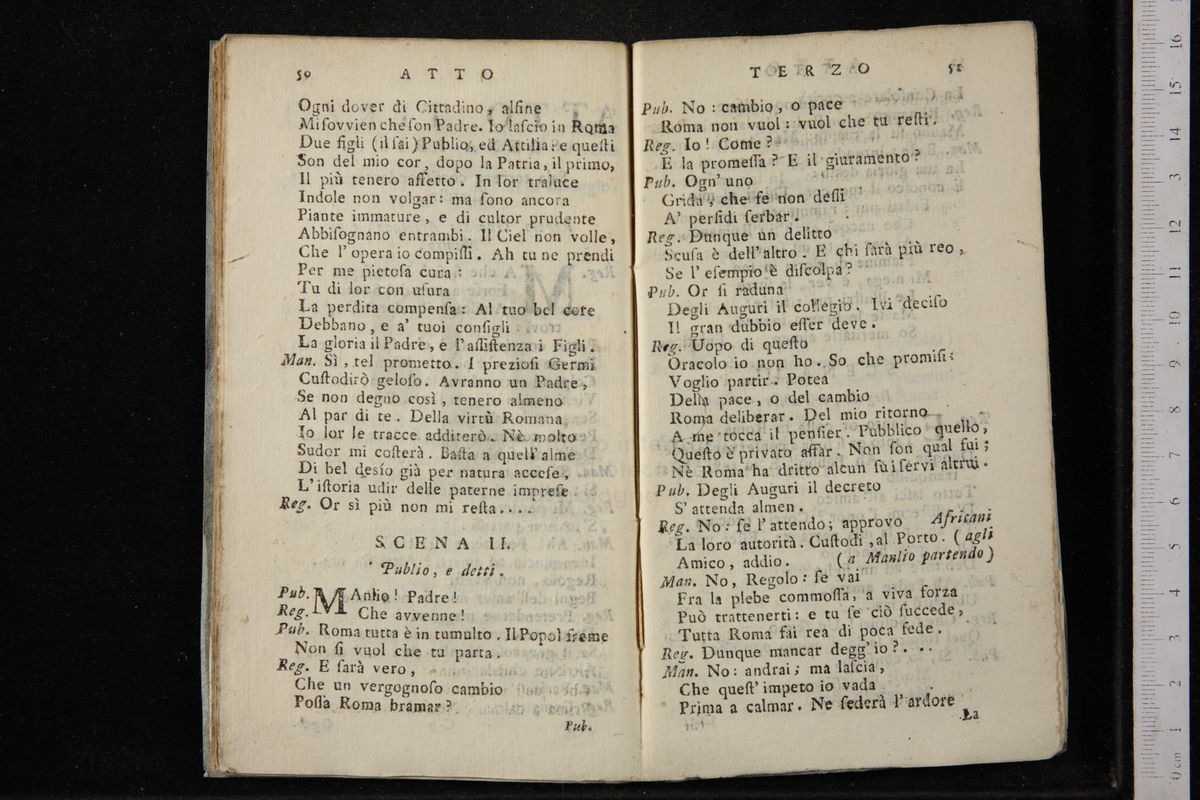 50 ATTO
Ogni dover di Cittadino, alfine
Miſovvien che ſon Padre. Io laſcio in Roma
Due figli (il ſai) Publio, ed Attilia: e queſti
Son del mio cor, dopo la Patria, il primo,
Il più tenero affetto. In lor traluce
Indole non volgar: ma ſono ancora
Piante immature, e di cultor prudente
Abbiſognano entrambi. Il Ciel non volle,
Che l'opera io compiſſi. Ah tu ne prendi
Per me pietoſa cura:
Tu di lor con uſura
La perdita compenſa: Al tuo bel core
Debbano, e a' tuoi conſigli
La gloria il Padre, e l'aſſiſtenza i Figli.
Man. Sì, tel prometto. I prezioſi Germi
Cuſtodirò geloſo. Avranno un Padre,
Se non degno così, tenero almeno
Al par di te. Della virtù Romana
Io lor le tracce additerò. Nè molto
Sudor mi coſterà. Baſta a quell'alme
Di bel desío già per natura acceſe,
L'iſtoria udir delle paterne impreſe
Reg. Or sì più non mi reſta....
SCENA II.
Publio, e detti.
Pub. MAnlio! Padre!
Reg. Che avvenne!
Pub. Roma tutta è in tumulto. Il Popol freme
Non ſi vuol che tu parta.
Reg. E ſarà vero,
Che un vergognoſo cambio
Poſſa Roma bramar?
Pub.
TERZO 51
Pub. No: cambio, o pace
Roma non vuol: vuol che tu reſti.
Reg. Io! Come?
E la promeſſa? E il giuramento?
Pub. Ogn'uno
Grida, che fe non deſſi
A' perfidi ſerbar.
Reg. Dunque un delitto
Scuſa è dell'altro. E chi ſarà più reo,
Se l'eſempio è diſcolpa?
Pub. Or ſi raduna
Degli Auguri il collegio. Ivi deciſo
Il gran dubbio eſſer deve.
Reg. Uopo di queſto
Oracolo io non ho. So che promiſi:
Voglio partir. Potea
Della pace, o del cambio
Roma deliberar. Del mio ritorno
A me tocca il penſier. Pubblico quello,
Queſto è privato affar. Non ſon qual fui;
Nè Roma ha dritto alcun ſui ſervi altrui.
Pub. Degli Auguri il decreto
S'attenda almen.
Reg. No: ſe l'attendo; approvo Africani
La loro autorità. Cuſtodi, al Porto. (agli
Amico, addio. (a Manlio partendo)
Man. No, Regolo: ſe vai
Fra la plebe commoſſa, a viva forza
Può trattenerti: e tu ſe ciò ſuccede,
Tutta Roma fai rea di poca fede.
Reg. Dunque mancar degg'io?...
Man. No: andrai; ma laſcia,
Che queſt'impeto io vada
Prima a calmar. Ne ſederà l'ardore
La
0 cm 1 2 3 4 5 6 7 8 9 10 11 12 13 14 15 16